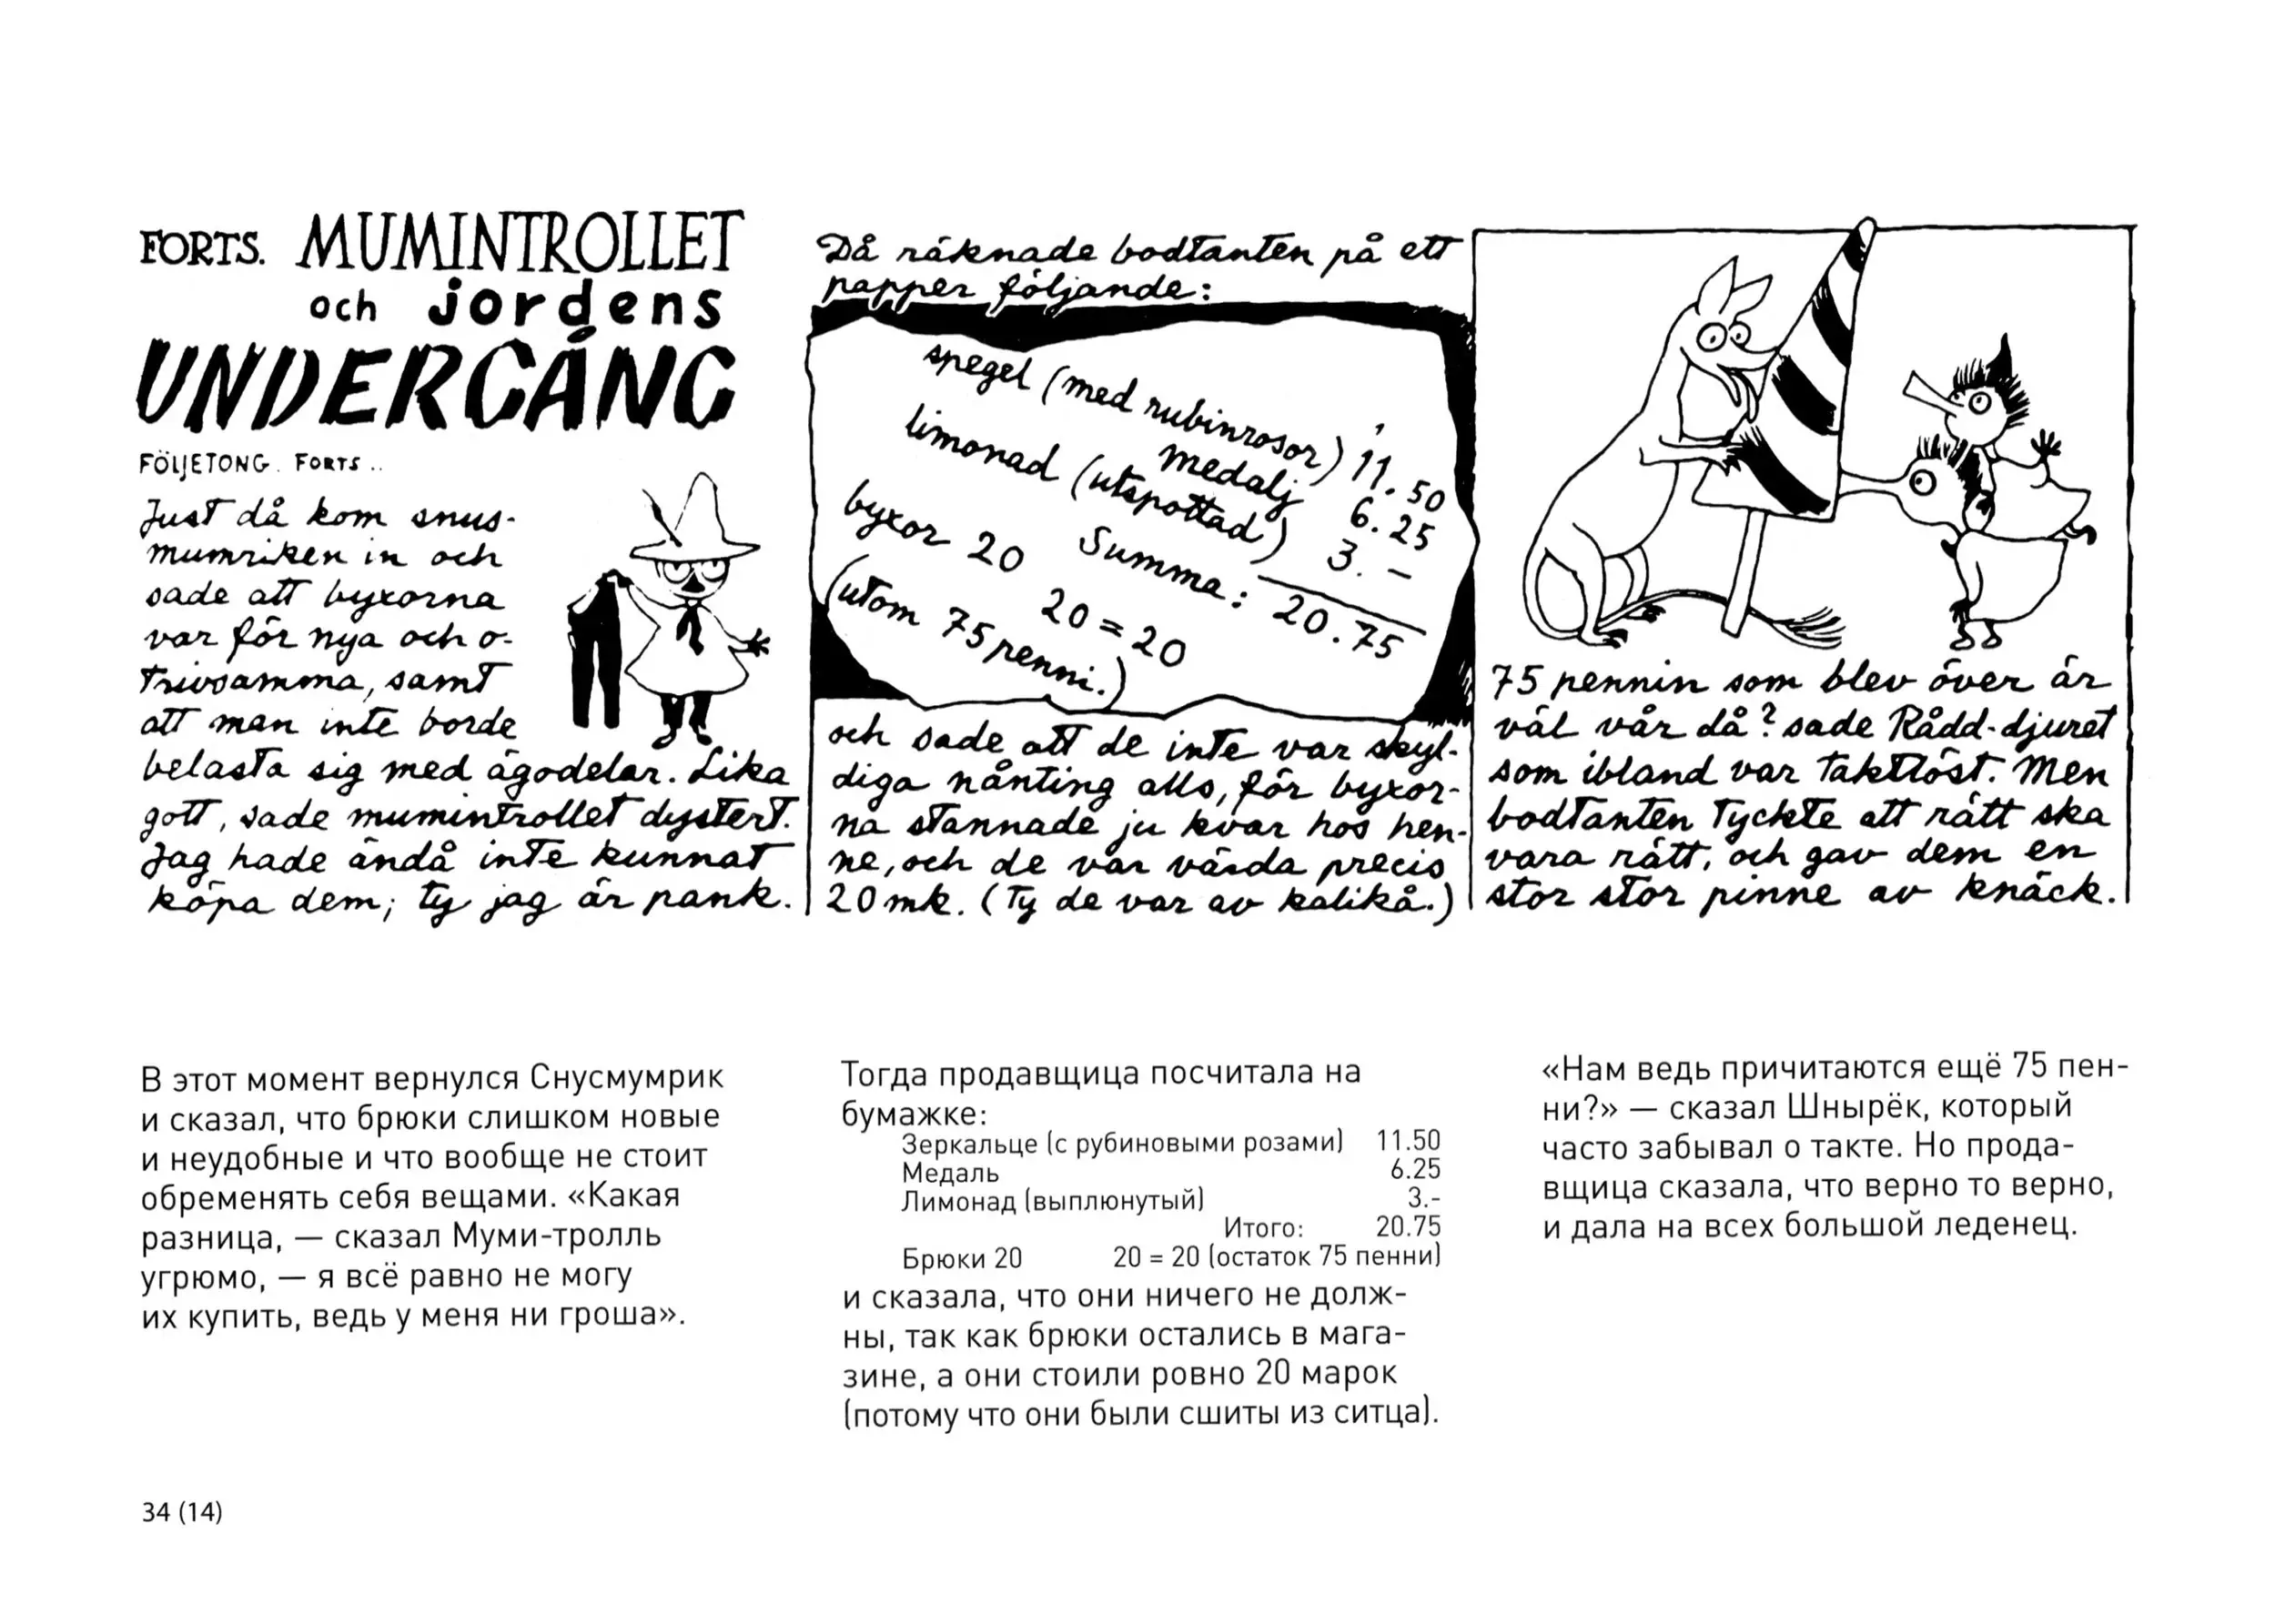 FORTS. MUMINTROLLET
och jordens
UNDERGÅNG
FÖLJETONG. FORTS..
Just då kom snus-
mumriken in och
sade att byxorna
var för nya och o-
trivsamma, samt
att man inte borde
belasta sig med ägodelar. Lika
gott, sade mumintrollet dystert.
Jag hade ändå inte kunnat
köpa dem; ty jag är pank.
Då räknade bodtanten på ett
papper följande:
spegel (med rubinrosor) 11.50
medalj 6.25
limonad (utspottad) 3.–
Summa: 20.75
byxor 20 20=20
(utom 75 penni.)
och sade att de inte var skyl-
diga nånting alls, för byxor-
na stannade ju kvar hos hen-
ne, och de var värda precis
20 mk. (Ty de var av kalikå.)
75 pennin som blev över är
väl vår då? sade Rådd-djuret
som ibland var taktlöst. Men
bodtanten tyckte att rätt ska
vara rätt, och gav dem en
stor stor pinne av knäck.
В этот момент вернулся Снусмумрик
и сказал, что брюки слишком новые
и неудобные и что вообще не стоит
обременять себя вещами. «Какая
разница, — сказал Муми-тролль
угрюмо, — я всё равно не могу
их купить, ведь у меня ни гроша».
Тогда продавщица посчитала на
бумажке:
Зеркальце (с рубиновыми розами) 11.50
Медаль 6.25
Лимонад (выплюнутый) 3.-
Итого: 20.75
Брюки 20 20 = 20 (остаток 75 пенни)
и сказала, что они ничего не долж-
ны, так как брюки остались в мага-
зине, а они стоили ровно 20 марок
(потому что они были сшиты из ситца).
«Нам ведь причитаются ещё 75 пен-
ни?» — сказал Шнырёк, который
часто забывал о такте. Но прода-
вщица сказала, что верно то верно,
и дала на всех большой леденец.
34 (14)